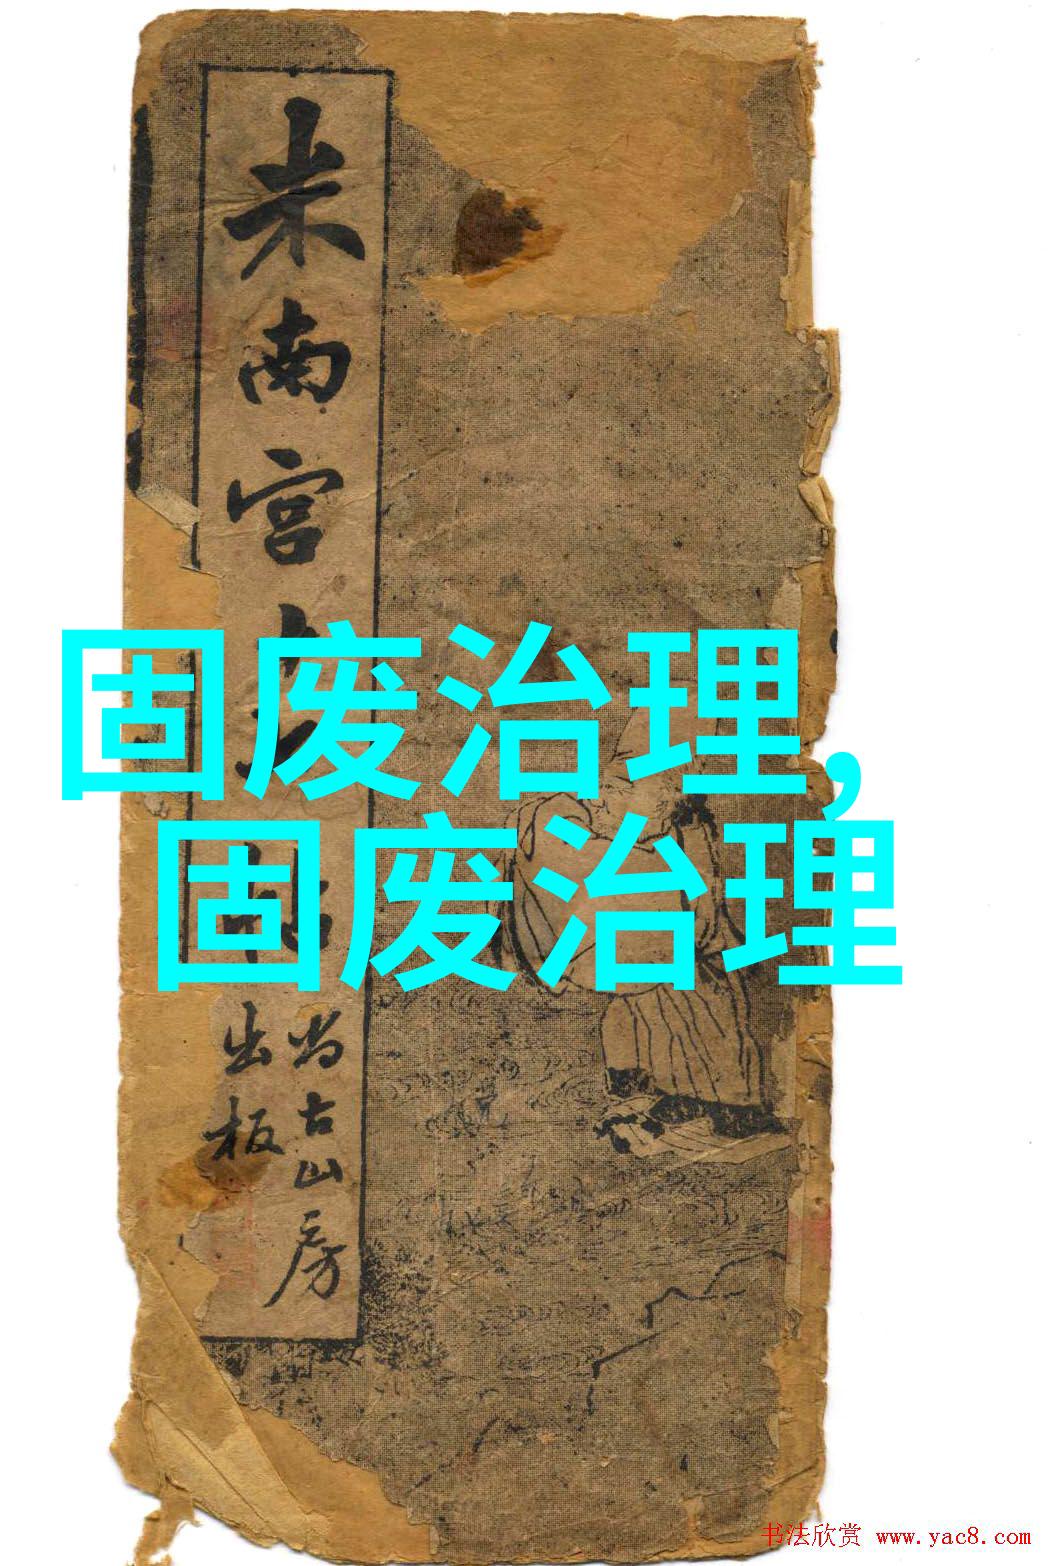 米南宫
尚古山房
出板
固废治理,
固废治理
书法欣赏 www.yac8.com